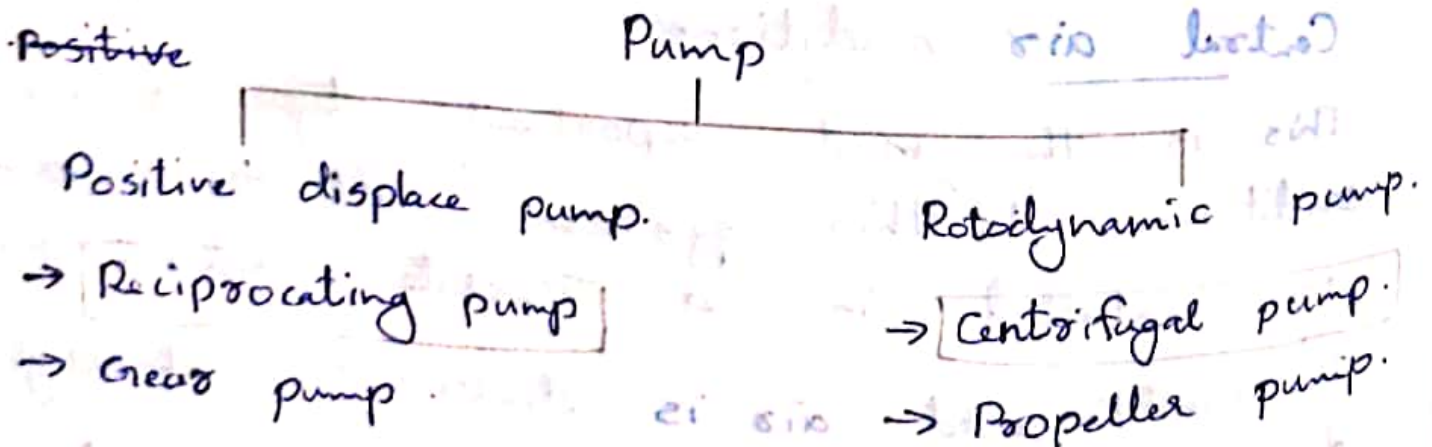 Positive
Pump
Positive displace pump.
→ Reciprocating pump
→ Gear pump.
Rotodynamic pump.
→ Centrifugal pump.
→ Propeller pump.